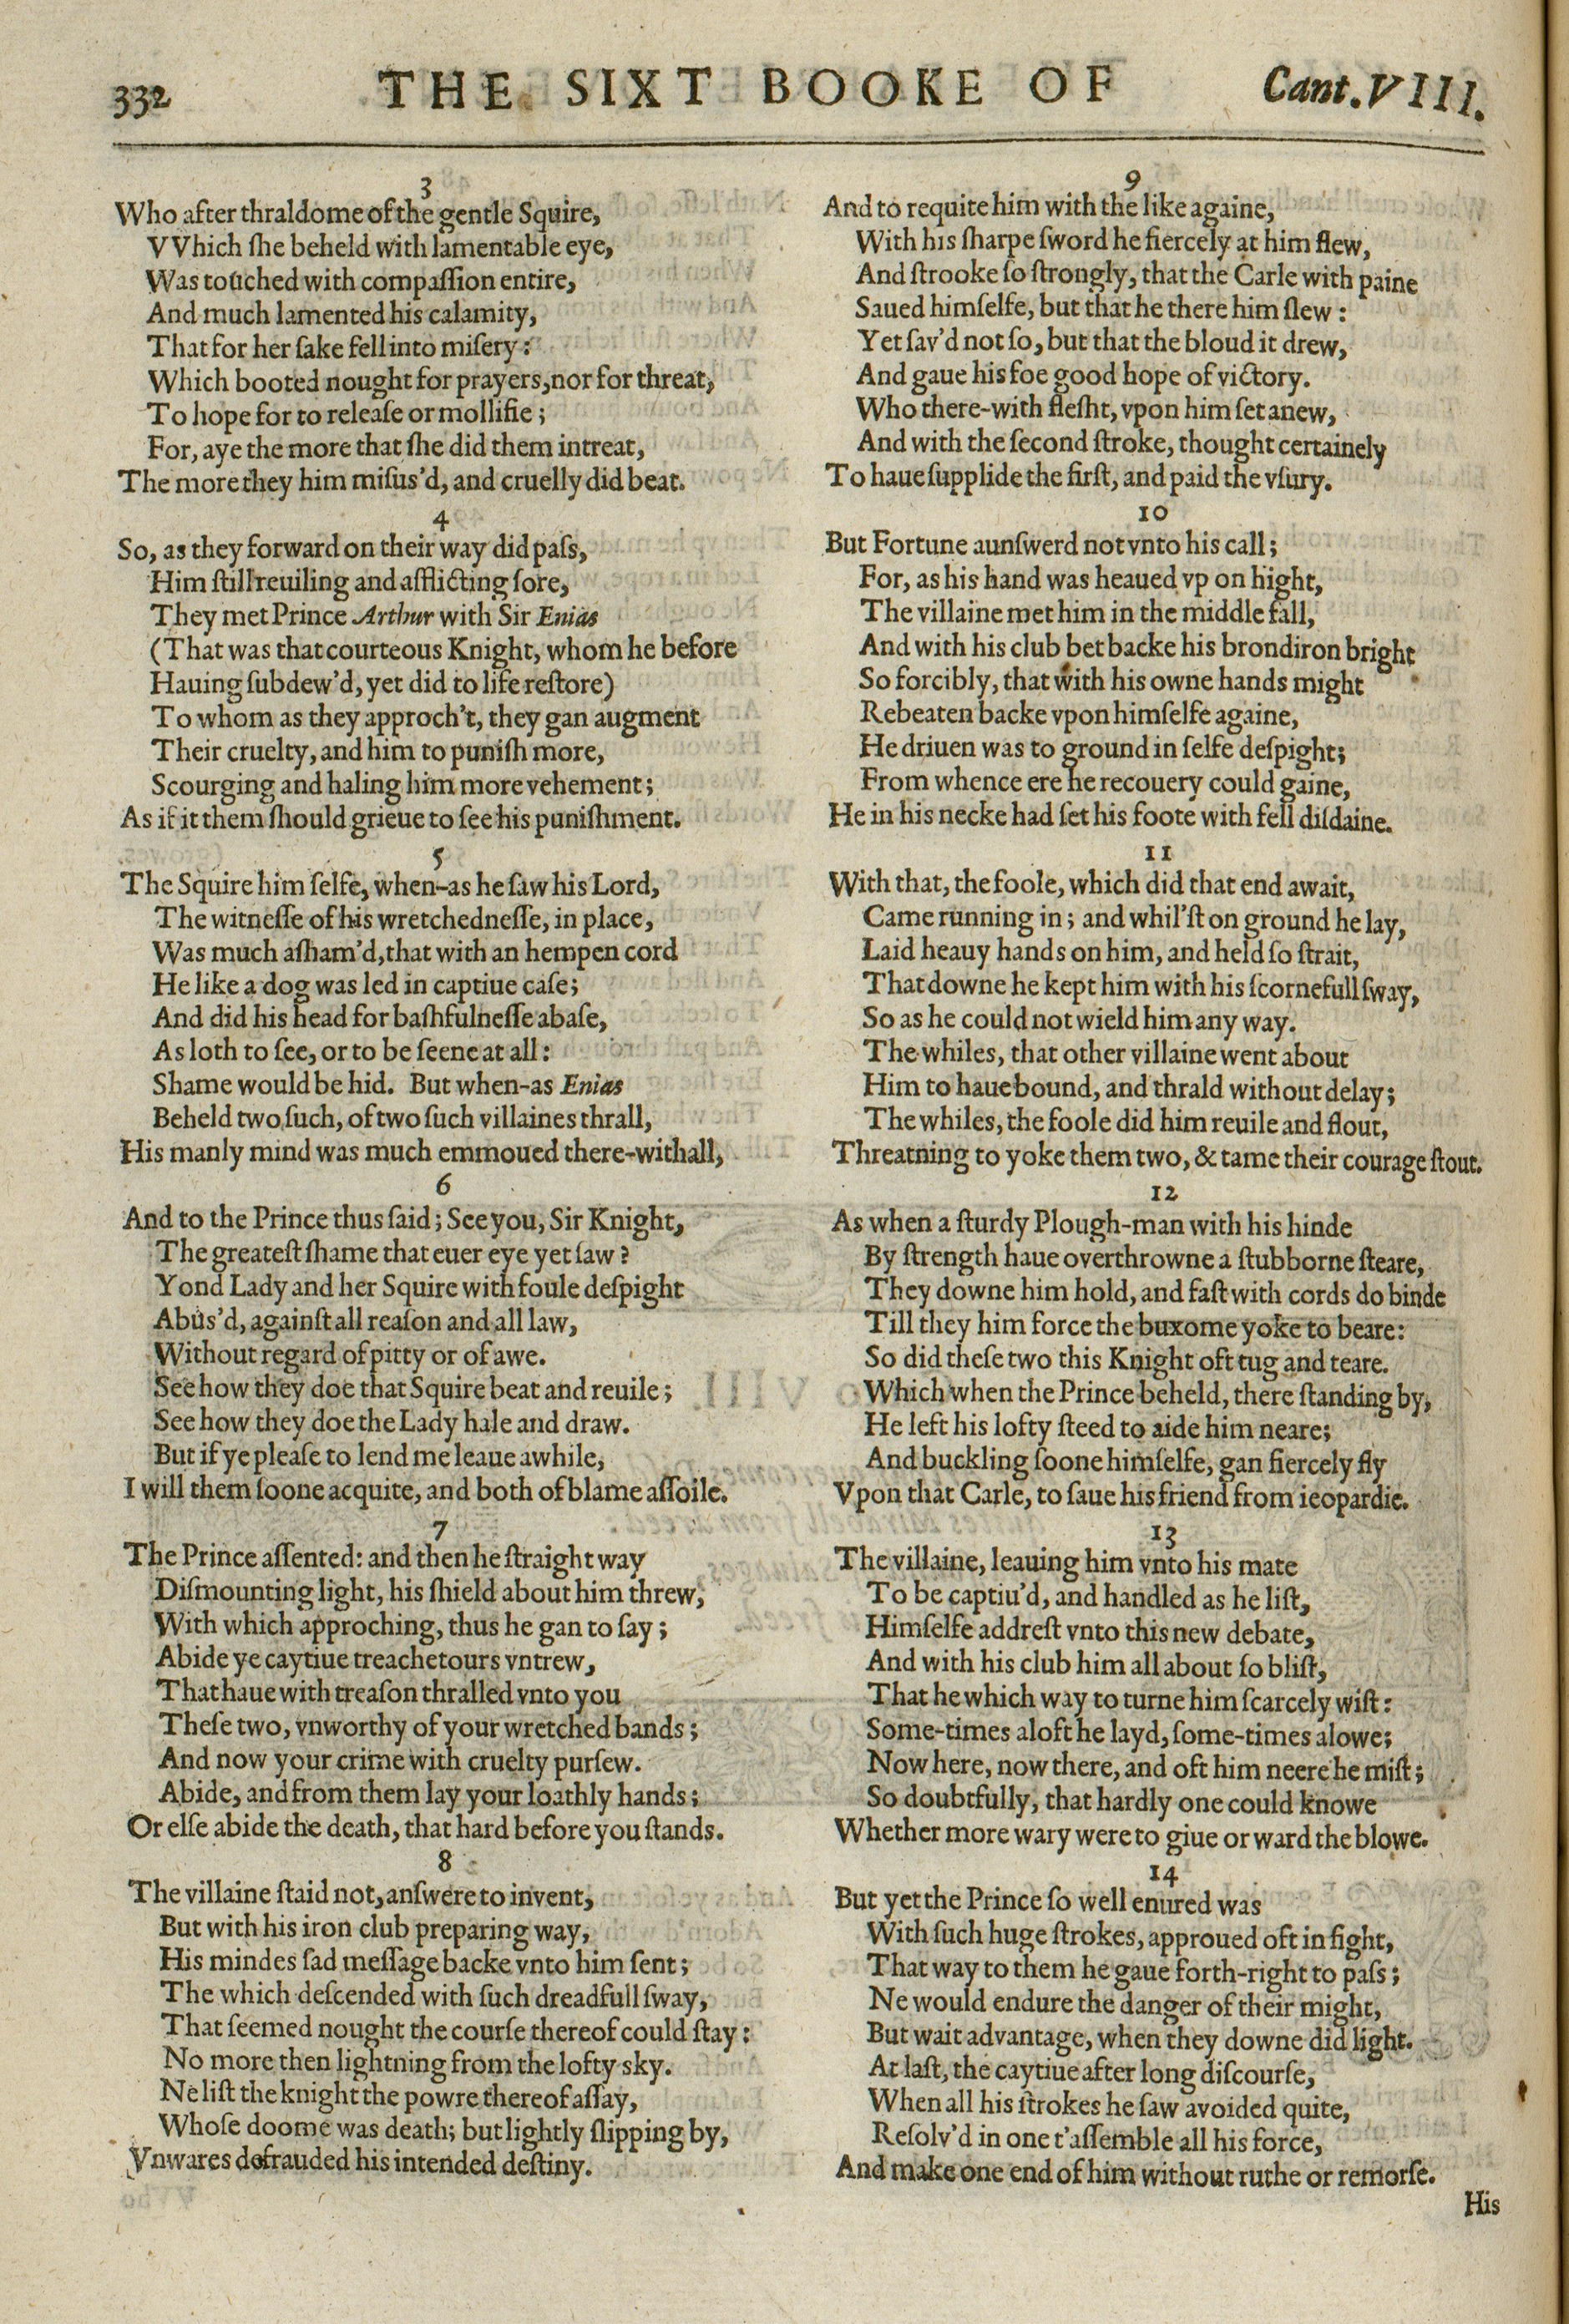 332 THE SIXT BOOKE OF Cant. VIII.
3
Who after thraldome of the gentle Squire,
VVhich ſhe beheld with lamentable eye,
Was touched with compaſſion entire,
And much lamented his calamity,
That for her ſake fell into miſery:
Which booted nought for prayers, nor for threat,
To hope for to releaſe or mollifie;
For, aye the more that ſhe did them intreat,
The more they him miſus'd, and cruelly did beat.
4
So, as they forward on their way did paſs,
Him ſtill reuiling and afflicting ſore,
They met Prince Arthur with Sir Enias
(That was that courteous Knight, whom he before
Hauing ſubdew'd, yet did to life reſtore)
To whom as they approch't, they gan augment
Their cruelty, and him to puniſh more,
Scourging and haling him more vehement;
As if it them ſhould grieue to ſee his puniſhment.
5
The Squire him ſelfe, when-as he ſaw his Lord,
The witneſſe of his wretchedneſſe, in place,
Was much aſham'd, that with an hempen cord
He like a dog was led in captiue caſe;
And did his head for baſhfulneſſe abaſe,
As loth to ſee, or to be ſeene at all:
Shame would be hid. But when-as Enias
Beheld two ſuch, of two ſuch villaines thrall,
His manly mind was much emmoued there-withall,
6
And to the Prince thus ſaid; See you, Sir Knight,
The greateſt ſhame that euer eye yet ſaw?
Yond Lady and her Squire with foule deſpight
Abus'd, againſt all reaſon and all law,
Without regard of pitty or of awe.
See how they doe that Squire beat and reuile;
See how they doe the Lady hale and draw.
But if ye pleaſe to lend me leaue awhile,
I will them ſoone acquite, and both of blame aſſoile.
7
The Prince aſſented: and then he ſtraight way
Diſmounting light, his ſhield about him threw,
With which approching, thus he gan to ſay;
Abide ye caytiue treachetours vntrew,
That haue with treaſon thralled vnto you
Theſe two, vnworthy of your wretched bands;
And now your crime with cruelty purſew.
Abide, and from them lay your loathly hands;
Or elſe abide the death, that hard before you ſtands.
8
The villaine ſtaid not, anſwere to invent,
But with his iron club preparing way,
His mindes ſad meſſage backe vnto him ſent;
The which deſcended with ſuch dreadfull ſway,
That ſeemed nought the courſe thereof could ſtay:
No more then lightning from the lofty sky.
Ne liſt the knight the powre thereof aſſay,
Whoſe doome was death; but lightly ſlipping by,
Vnwares defrauded his intended deſtiny.
9
And to requite him with the like againe,
With his ſharpe ſword he fiercely at him flew,
And ſtrooke ſo ſtrongly, that the Carle with paine
Saued himſelfe, but that he there him ſlew:
Yet ſav'd not ſo, but that the bloud it drew,
And gaue his foe good hope of victory.
Who there-with fleſht, vpon him ſet anew,
And with the ſecond ſtroke, thought certainely
To haue ſupplide the firſt, and paid the vſury.
10
But Fortune aunſwerd not vnto his call;
For, as his hand was heaued vp on hight,
The villaine met him in the middle fall,
And with his club bet backe his brondiron bright
So forcibly, that with his owne hands might
Rebeaten backe vpon himſelfe againe,
He driuen was to ground in ſelfe deſpight;
From whence ere he recouery could gaine,
He in his necke had ſet his foote with fell diſdaine.
11
With that, the foole, which did that end await,
Came running in; and whil'ſt on ground he lay,
Laid heauy hands on him, and held ſo ſtrait,
That downe he kept him with his ſcornefull ſway,
So as he could not wield him any way.
The whiles, that other villaine went about
Him to haue bound, and thrald without delay;
The whiles, the foole did him reuile and flout,
Threatning to yoke them two, & tame their courage ſtout.
12
As when a ſturdy Plough-man with his hinde
By ſtrength haue overthrowne a ſtubborne ſteare,
They downe him hold, and faſt with cords do binde
Till they him force the buxome yoke to beare:
So did theſe two this Knight oft tug and teare.
Which when the Prince beheld, there ſtanding by,
He left his lofty ſteed to aide him neare;
And buckling ſoone himſelfe, gan fiercely fly
Vpon that Carle, to ſaue his friend from ieopardie.
13
The villaine, leauing him vnto his mate
To be captiu'd, and handled as he liſt,
Himſelfe addreſt vnto this new debate,
And with his club him all about ſo bliſt,
That he which way to turne him ſcarcely wiſt:
Some-times aloft he layd, ſome-times alowe;
Now here, now there, and oft him neere he miſt;
So doubtfully, that hardly one could knowe
Whether more wary were to giue or ward the blowe.
14
But yet the Prince ſo well enured was
With ſuch huge ſtrokes, approued oft in fight,
That way to them he gaue forth-right to paſs;
Ne would endure the danger of their might,
But wait advantage, when they downe did light.
At laſt, the caytiue after long diſcourſe,
When all his ſtrokes he ſaw avoided quite,
Reſolv'd in one t'aſſemble all his force,
And make one end of him without ruthe or remorſe.
His